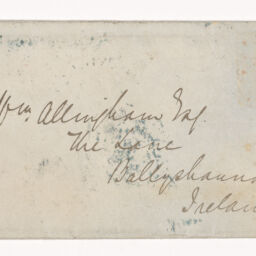 Wm Allingham Esq.
The Lane
Ballyshanno
Irelan